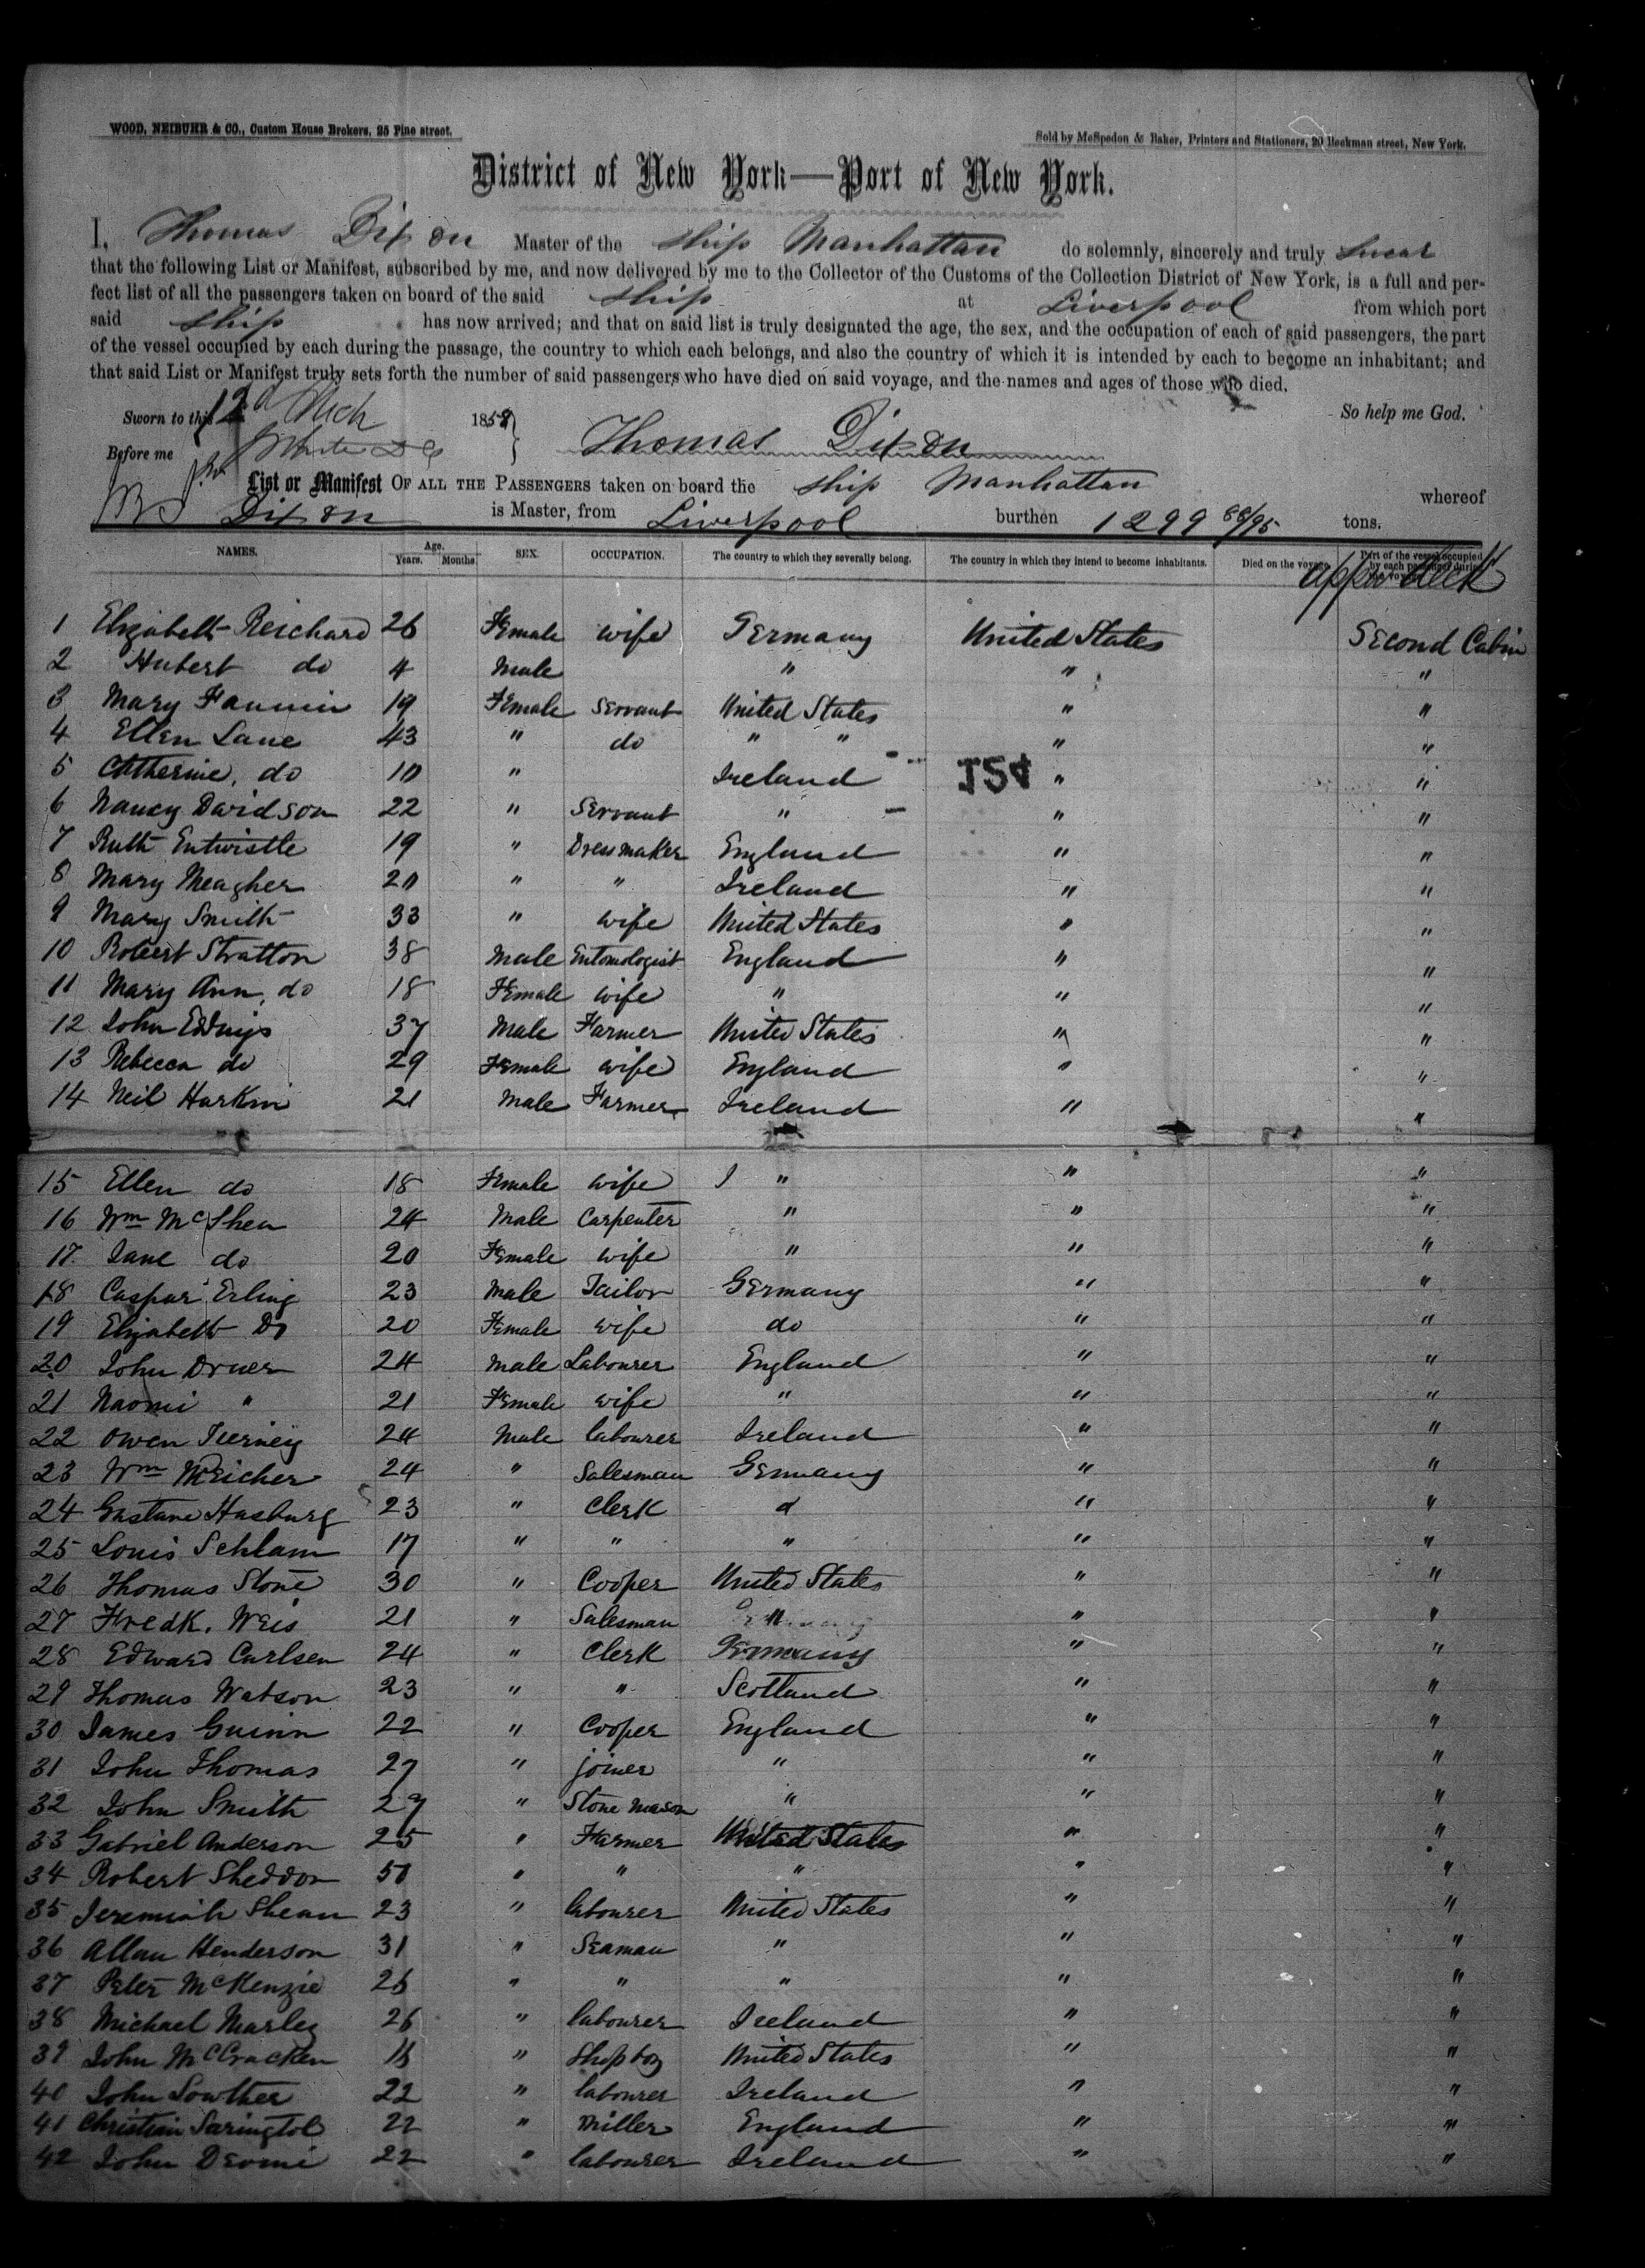 WOOD, NEIBUHR & CO., Custom House Brokers, 25 Pine street.
Sold by McSpedon & Baker, Printers and Stationers, 20 Beekman street, New York.
District of New York—Port of New York.
I, Thomas Dixon Master of the ship Manhattan do solemnly, sincerely and truly swear
that the following List or Manifest, subscribed by me, and now delivered by me to the Collector of the Customs of the Collection District of New York, is a full and per-
fect list of all the passengers taken on board of the said ship at Liverpool from which port
said ship has now arrived; and that on said list is truly designated the age, the sex, and the occupation of each of said passengers, the part
of the vessel occupied by each during the passage, the country to which each belongs, and also the country of which it is intended by each to become an inhabitant; and
that said List or Manifest truly sets forth the number of said passengers who have died on said voyage, and the names and ages of those who died.
So help me God.
Sworn to this 12 Mch 185
Before me
Thomas Dixon
List or Manifest OF ALL THE PASSENGERS taken on board the ship Manhattan whereof
Dixon is Master, from Liverpool burthen 1299 88/95 tons.
NAMES. Age. Years. Months. SEX. OCCUPATION. The country to which they severally belong. The country in which they intend to become inhabitants. Died on the voyage. Part of the vessel occupied by each passenger during the voyage.
upper deck
1 Elizabeth Reichard 26 Female wife Germany United States Second Cabin
2 Hubert do 4 Male " " "
3 Mary Fannin 19 Female Servant United States " "
4 Ellen Lane 43 " do " " " "
5 Catherine, do 10 " Ireland " "
6 Nancy Davidson 22 " Servant " " "
7 Ruth Entwistle 19 " Dressmaker England " "
8 Mary Meagher 20 " " Ireland " "
9 Mary Smith 33 " wife United States " "
10 Robert Stratton 38 Male Entomologist England " "
11 Mary Ann, do 18 Female wife " " "
12 John 37 Male Farmer United States " "
13 Rebecca do 29 Female wife England " "
14 Neil Harkin 21 Male Farmer Ireland " "
15 Ellen do 18 Female wife " " "
16 Wm McShea 24 Male Carpenter " " "
17 Jane do 20 Female wife " " "
18 Caspar Erling 23 Male Tailor Germany " "
19 Elizabeth Do 20 Female wife do " "
20 John Druer 24 Male Labourer England " "
21 Naomi " 21 Female wife " " "
22 Owen Tierney 24 Male labourer Ireland " "
23 Wm 24 " Salesman Germany " "
24 Gastave Hasburg 23 " Clerk " "
25 Louis Schlam 17 " " " " "
26 Thomas Stone 30 " Cooper United States " "
27 Fredk. Weis 21 " Salesman " " "
28 Edward Carlsen 24 " Clerk Germany " "
29 Thomas Watson 23 " " Scotland " "
30 James Guinn 22 " Cooper England " "
31 John Thomas 27 " joiner " " "
32 John Smith 27 " Stone Mason " " "
33 Gabriel Anderson 25 " Farmer United States " "
34 Robert Sheddon 50 " " " " "
35 Jeremiah Shean 23 " labourer United States " "
36 Allan Henderson 31 " Seaman " " "
37 Peter McKenzie 26 " " " " "
38 Michael Marley 26 " labourer Ireland " "
39 John McCracken " Shop boy United States " "
40 John Lowther 22 " labourer Ireland " "
41 Christian 22 " Miller England " "
42 John 22 " labourer Ireland " "